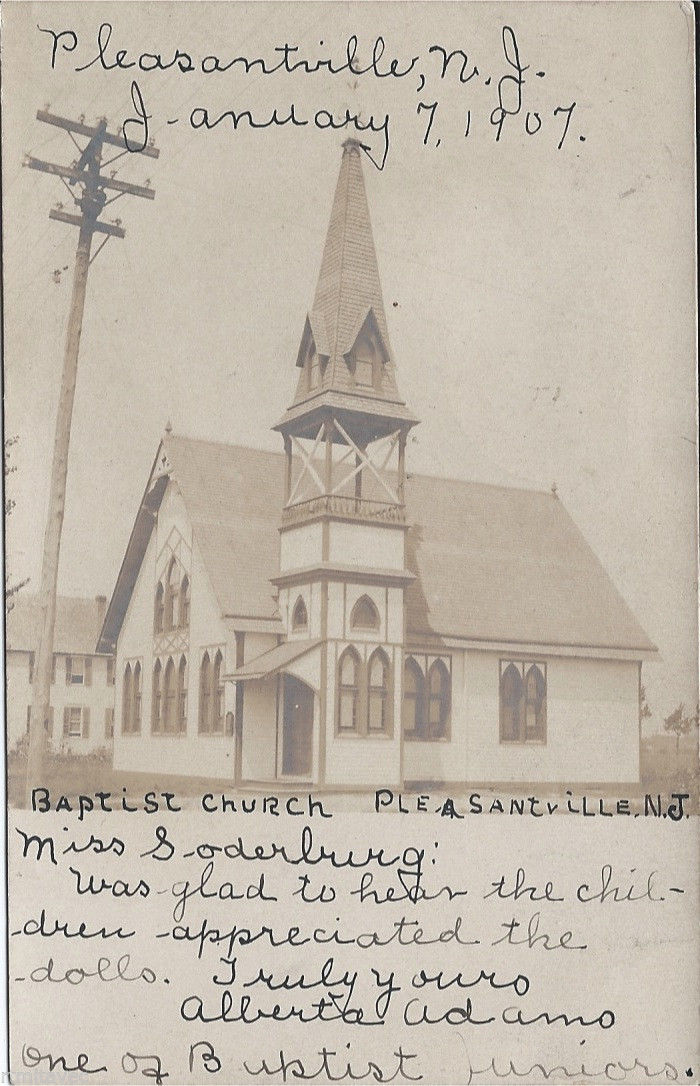 Pleasantville, N.J.
January 7, 1907.
Baptist Church Pleasantville, N.J.
Miss Soderburg:
Was glad to hear the chil-
-dren appreciated the
dolls. Truly yours
Alberta Adams
One of Baptist Juniors.